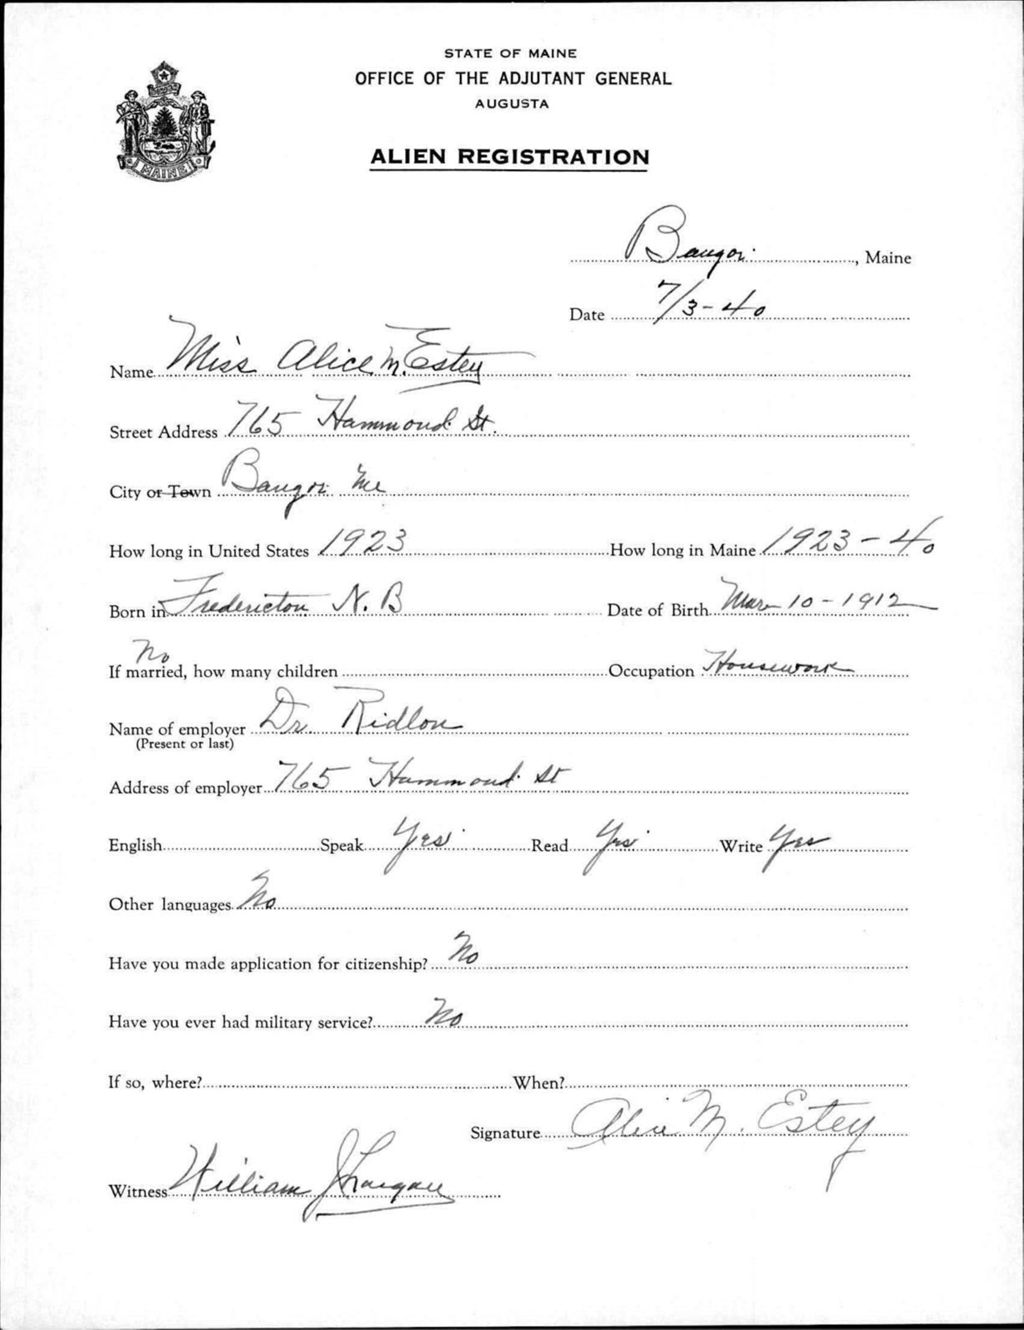 STATE OF MAINE
OFFICE OF THE ADJUTANT GENERAL
AUGUSTA
ALIEN REGISTRATION
MAINE
Bangor, Maine
Date 7/3-40
Name Miss Alice M. Estey
Street Address 765 Hammond St.
City or Town Bangor Me
How long in United States 1923 How long in Maine 1923-40
Born in Fredericton N.B Date of Birth Mar 10-1912
No
If married, how many children Occupation Housework
Name of employer Dr. Ridlon
(Present or last)
Address of employer 765 Hammond St
English Speak Yes Read Yes Write Yes
Other languages No
Have you made application for citizenship? No
Have you ever had military service? No
If so, where? When?
Signature Alice M. Estey
Witness William J